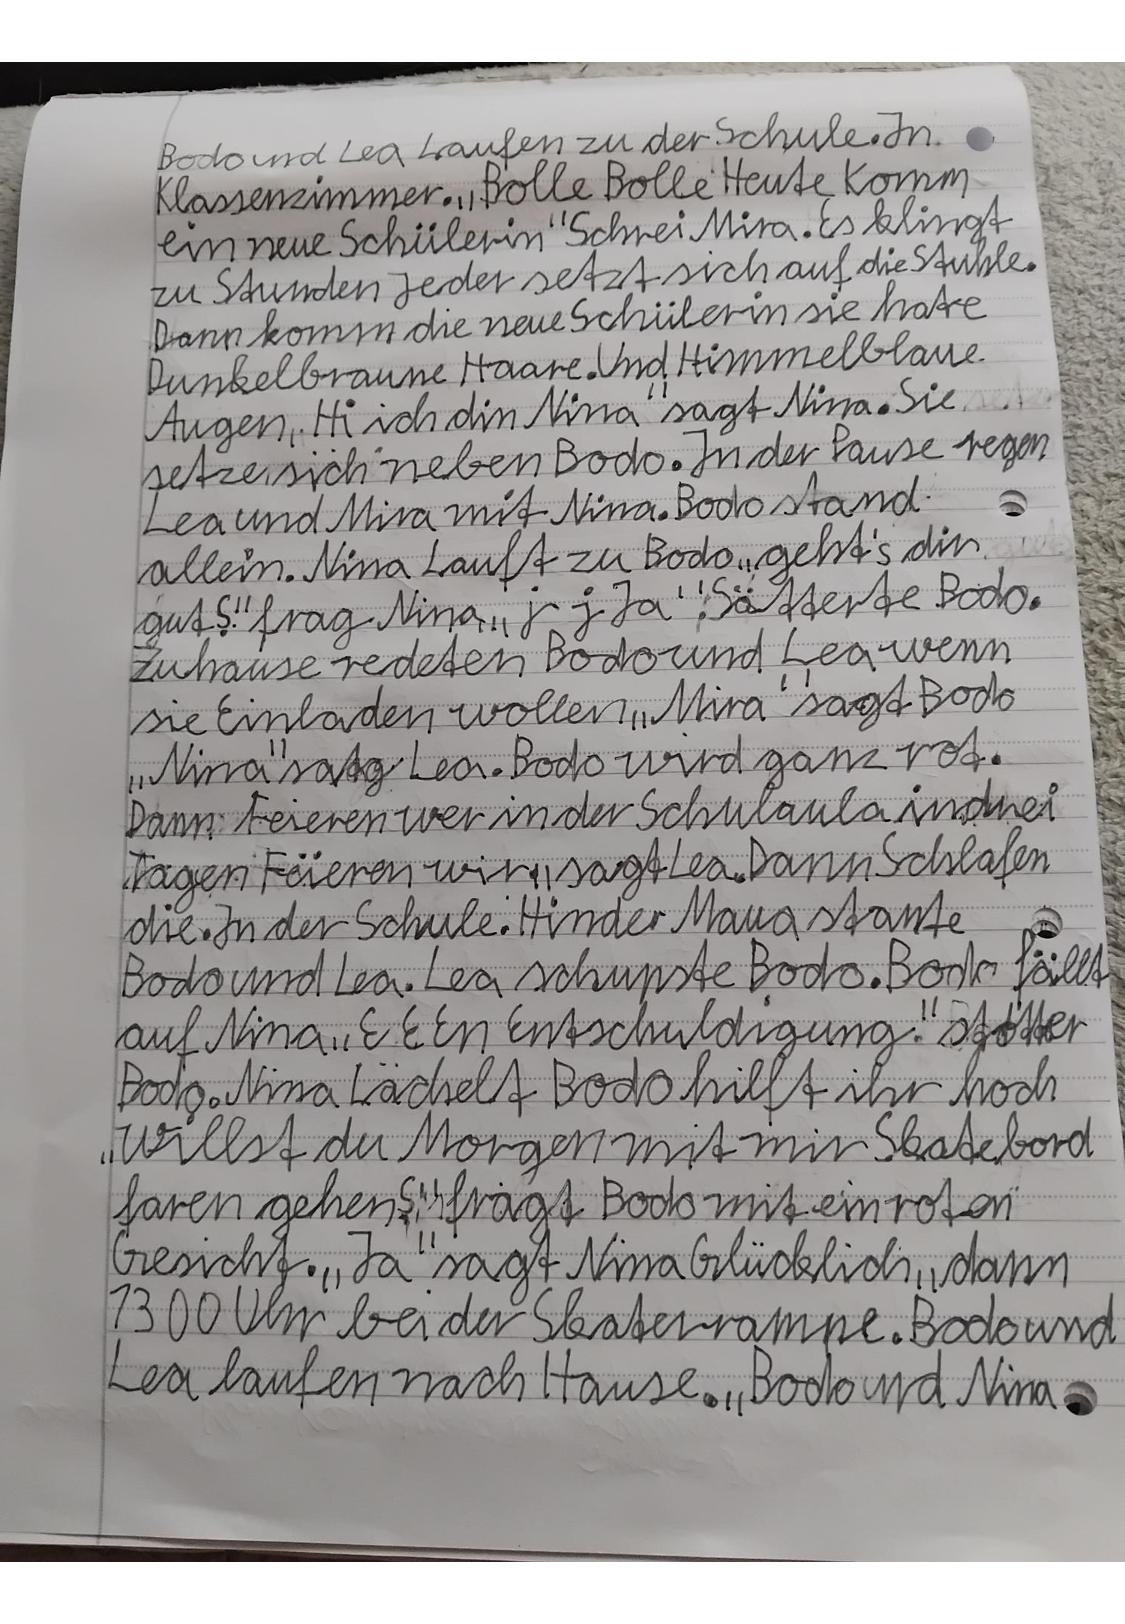 Bodo und Lea Laufen zu der Schule. In
Klassenzimmer. „Bolle Bolle Heute Komm
ein neue Schülerin" Schrei Mira. Es klingt
zu Stunden Jeder setzt sich auf die Stuhle.
Dann komm die neue Schülerin sie hate
Dunkelbraune Haare. Und Himmelblaue
Augen „Hi ich din Nina" sagt Nina. Sie
setze sich neben Bodo. In der Pause regen
Lea und Mira mit Nina. Bodo stand
allein. Nina Lauft zu Bodo „geht's dir
gut?" frag Nina „j j Ja" Sätterte Bodo.
Zuhause redeten Bodo und Lea wenn
sie Einladen wollen „Mira" sagt Bodo
„Nina" satg Lea. Bodo wird ganz rot.
Dann Feieren wer in der Schulaula in drei
Tagen Feieren wir „ sagt Lea. Dann Schlafen
die. In der Schule. Hinder Maua stante
Bodo und Lea. Lea schupste Bodo. Bodo fällt
auf Nina „E E En Entschuldigung!" stotter
Bodo. Nina Lächelt Bodo hilft ihr hoch
„Willst du Morgen mit mir Skatebord
faren gehen?" frägt Bodo mit ein roten
Gesicht. „Ja" sagt Nina Glücklich „dann
1300 Uhr bei der Skaterrampe. Bodo und
Lea laufen nach Hause. „Bodo und Nina